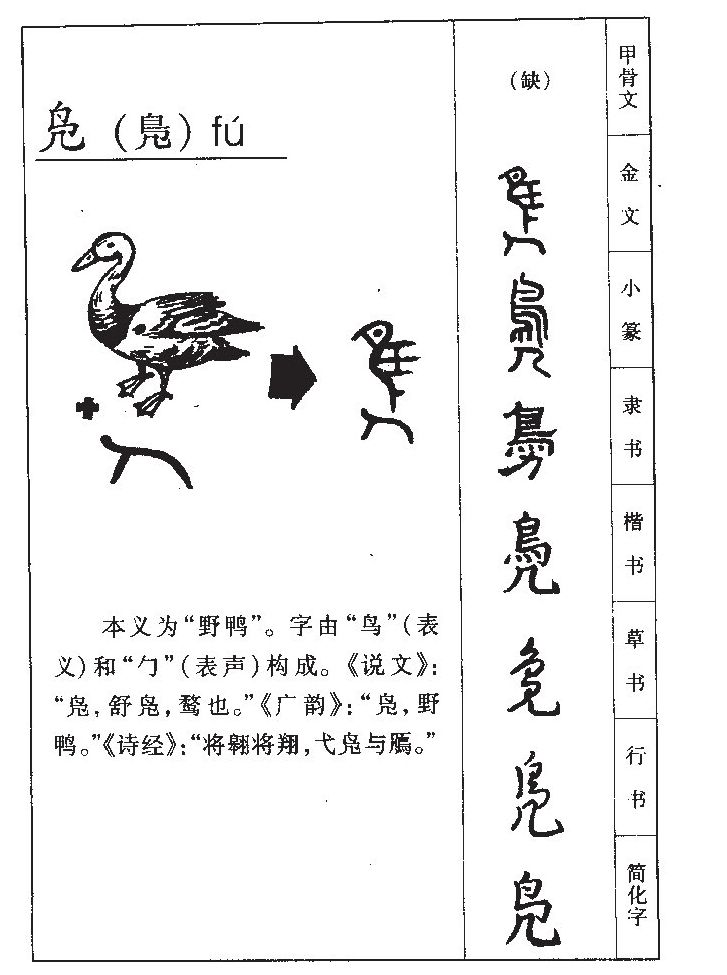 凫（鳧）fú
本义为“野鸭”。字由“鸟”（表
义）和“勹”（表声）构成。《说文》：
“凫，舒凫，鹜也。”《广韵》：“凫，野
鸭。”《诗经》：“将翱将翔，弋凫与鴈。”
（缺）
甲骨文
金文
小篆
隶书
楷书
鳧
草书
行书
简化字
凫